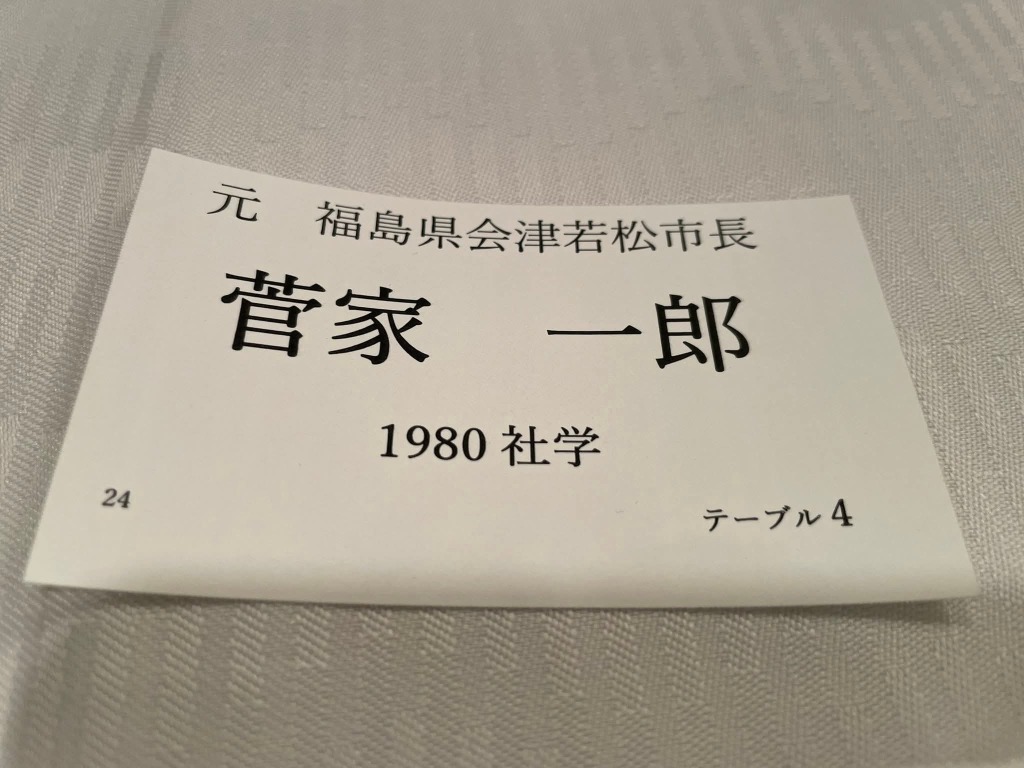 元　福島県会津若松市長
菅家　一郎
1980 社学
24
テーブル 4